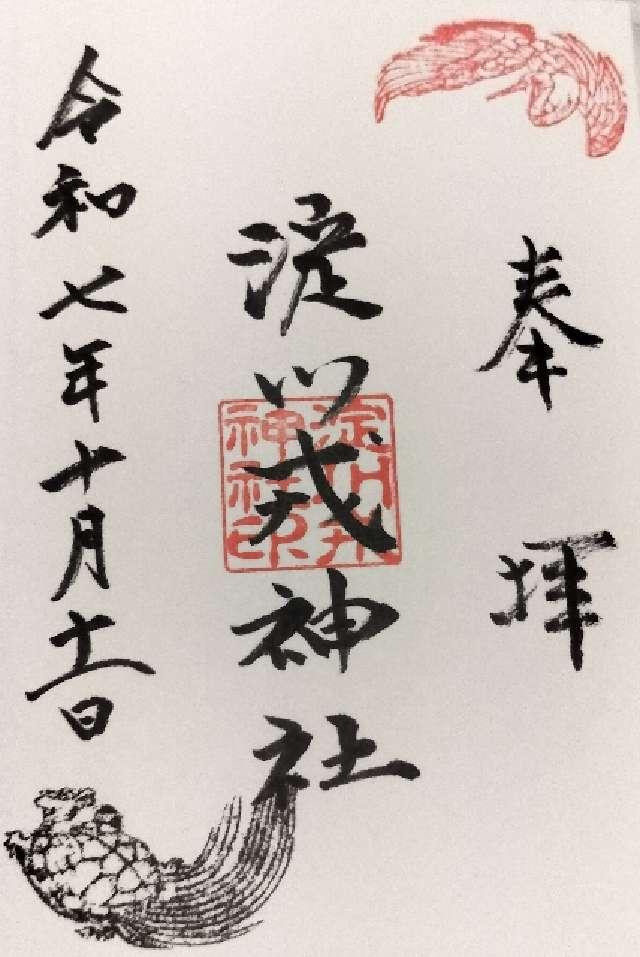 奉拝
淀川戎神社
淀川戎
神社印
令和七年十月十二日